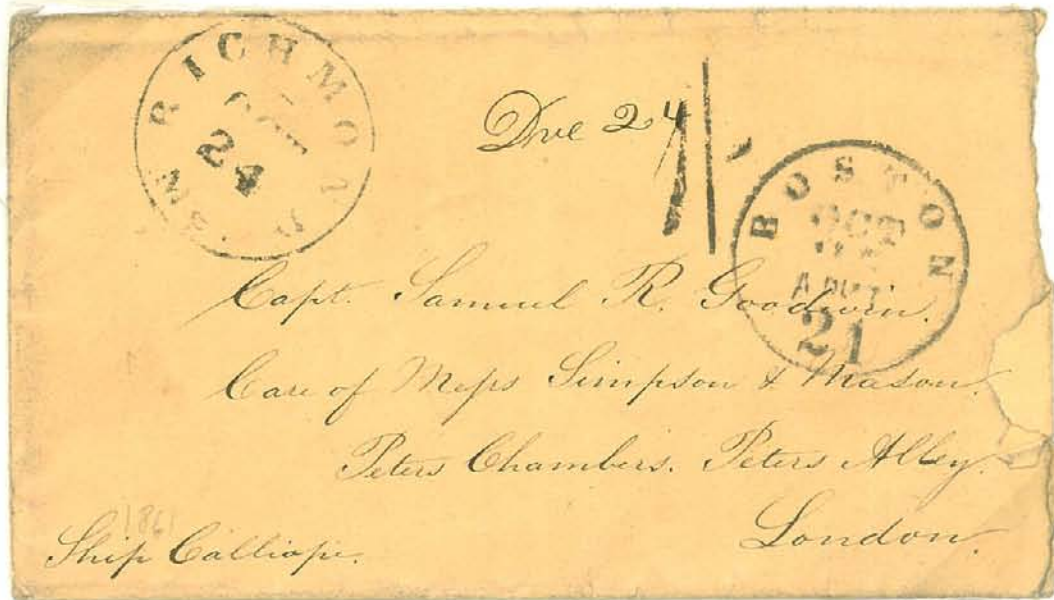 RICHMOND ME.
OCT
24
Due 24
1/-
BOSTON
OCT
21
Capt. Samuel R. Goodwin.
Care of Messrs Simpson & Mason.
Peters Chambers. Peters Alley.
London.
1861
Ship Calliope.